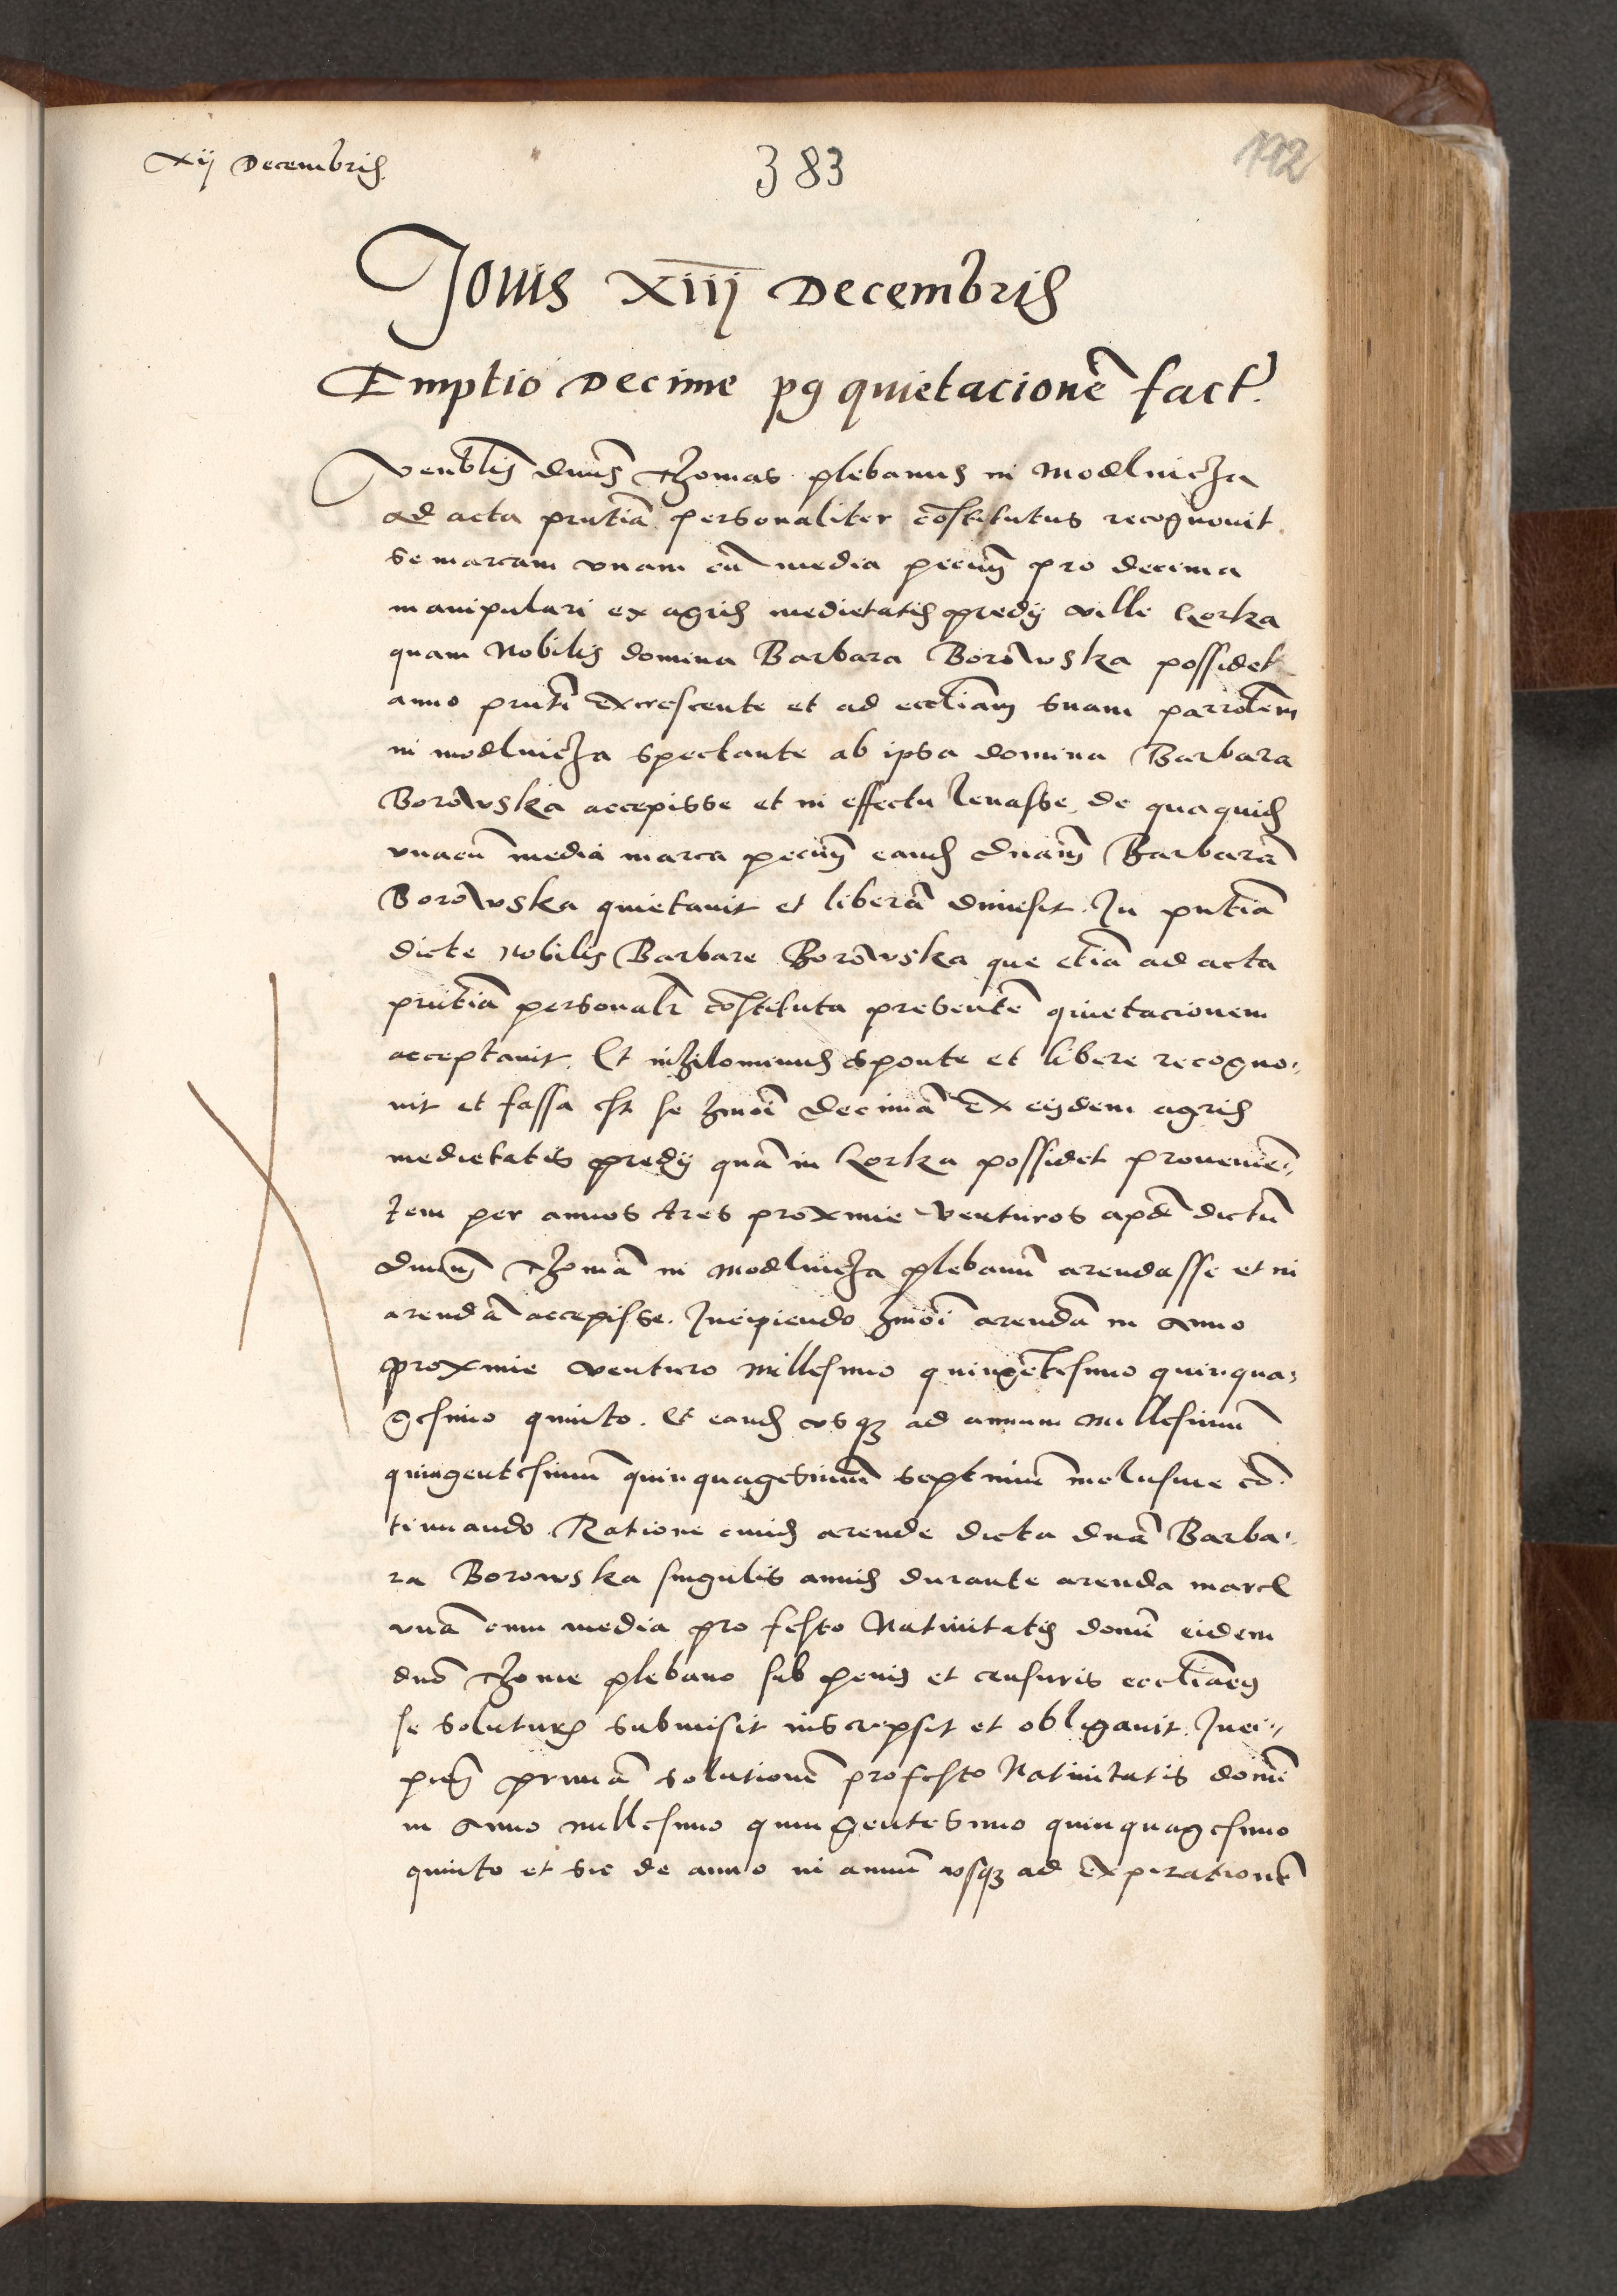 xij Decembris
383
192
Jovis XIII Decembris
Emptio Decime p9 quietacionē fact.
Venblis dnus Thomas plebanus in Modlnicza
ad acta pntia personaliter cōstitutus recognovit
se marcam vnam cū media pecun pro decima
manipulari ex agris medietatis predij ville Gorka
quam Nobilis domina Barbara Borowska possidet
anno pnti excrescente et ad eccliam suam parrolem
in modlnicza spectante ab ipsa domina Barbara
Borowska accepisse et in effectu levasse de qua quid
vnacū media marca pecun eand dnam Barbarā
Borowska quietavit et liberā dimisit. In pntia
dicte nobilis Barbare Borowska que etiā ad acta
pntia personalr cōstituta presentē quietacionem
acceptavit. Et nihilominus sponte et libere recogno-
vit et fassa est se hmoi decimā ex eisdem agris
medietatis predij quā in Gorka possidet provenien-
tem per annos tres proxime venturos apd dictū
dnum Thomā in Modlnicza plebanū arendasse et in
arendā accepisse. Incipiendo hmoi arendā in anno
proxime venturo millesimo quingētesimo quinqua-
gesimo quinto. Et eand vsq3 ad annum Millesimū
quingentesimū quinquagesimū septimū inclusive cō-
tinuando. Ratione cuius arende dicta dnā Barba-
ra Borowska singulis annis durante arenda marc
vnā cum media pro festo Nativitatis domi eidem
dno Thome plebano sub penis et censuris eccliacis
se soluturā submisit inscripsit et obligavit. Inci-
piend primā solutionē pro festo Nativitatis domi
in anno millesimo quingentesimo quinquagesimo
quinto et sic de anno in annū vsq3 ad expirationē